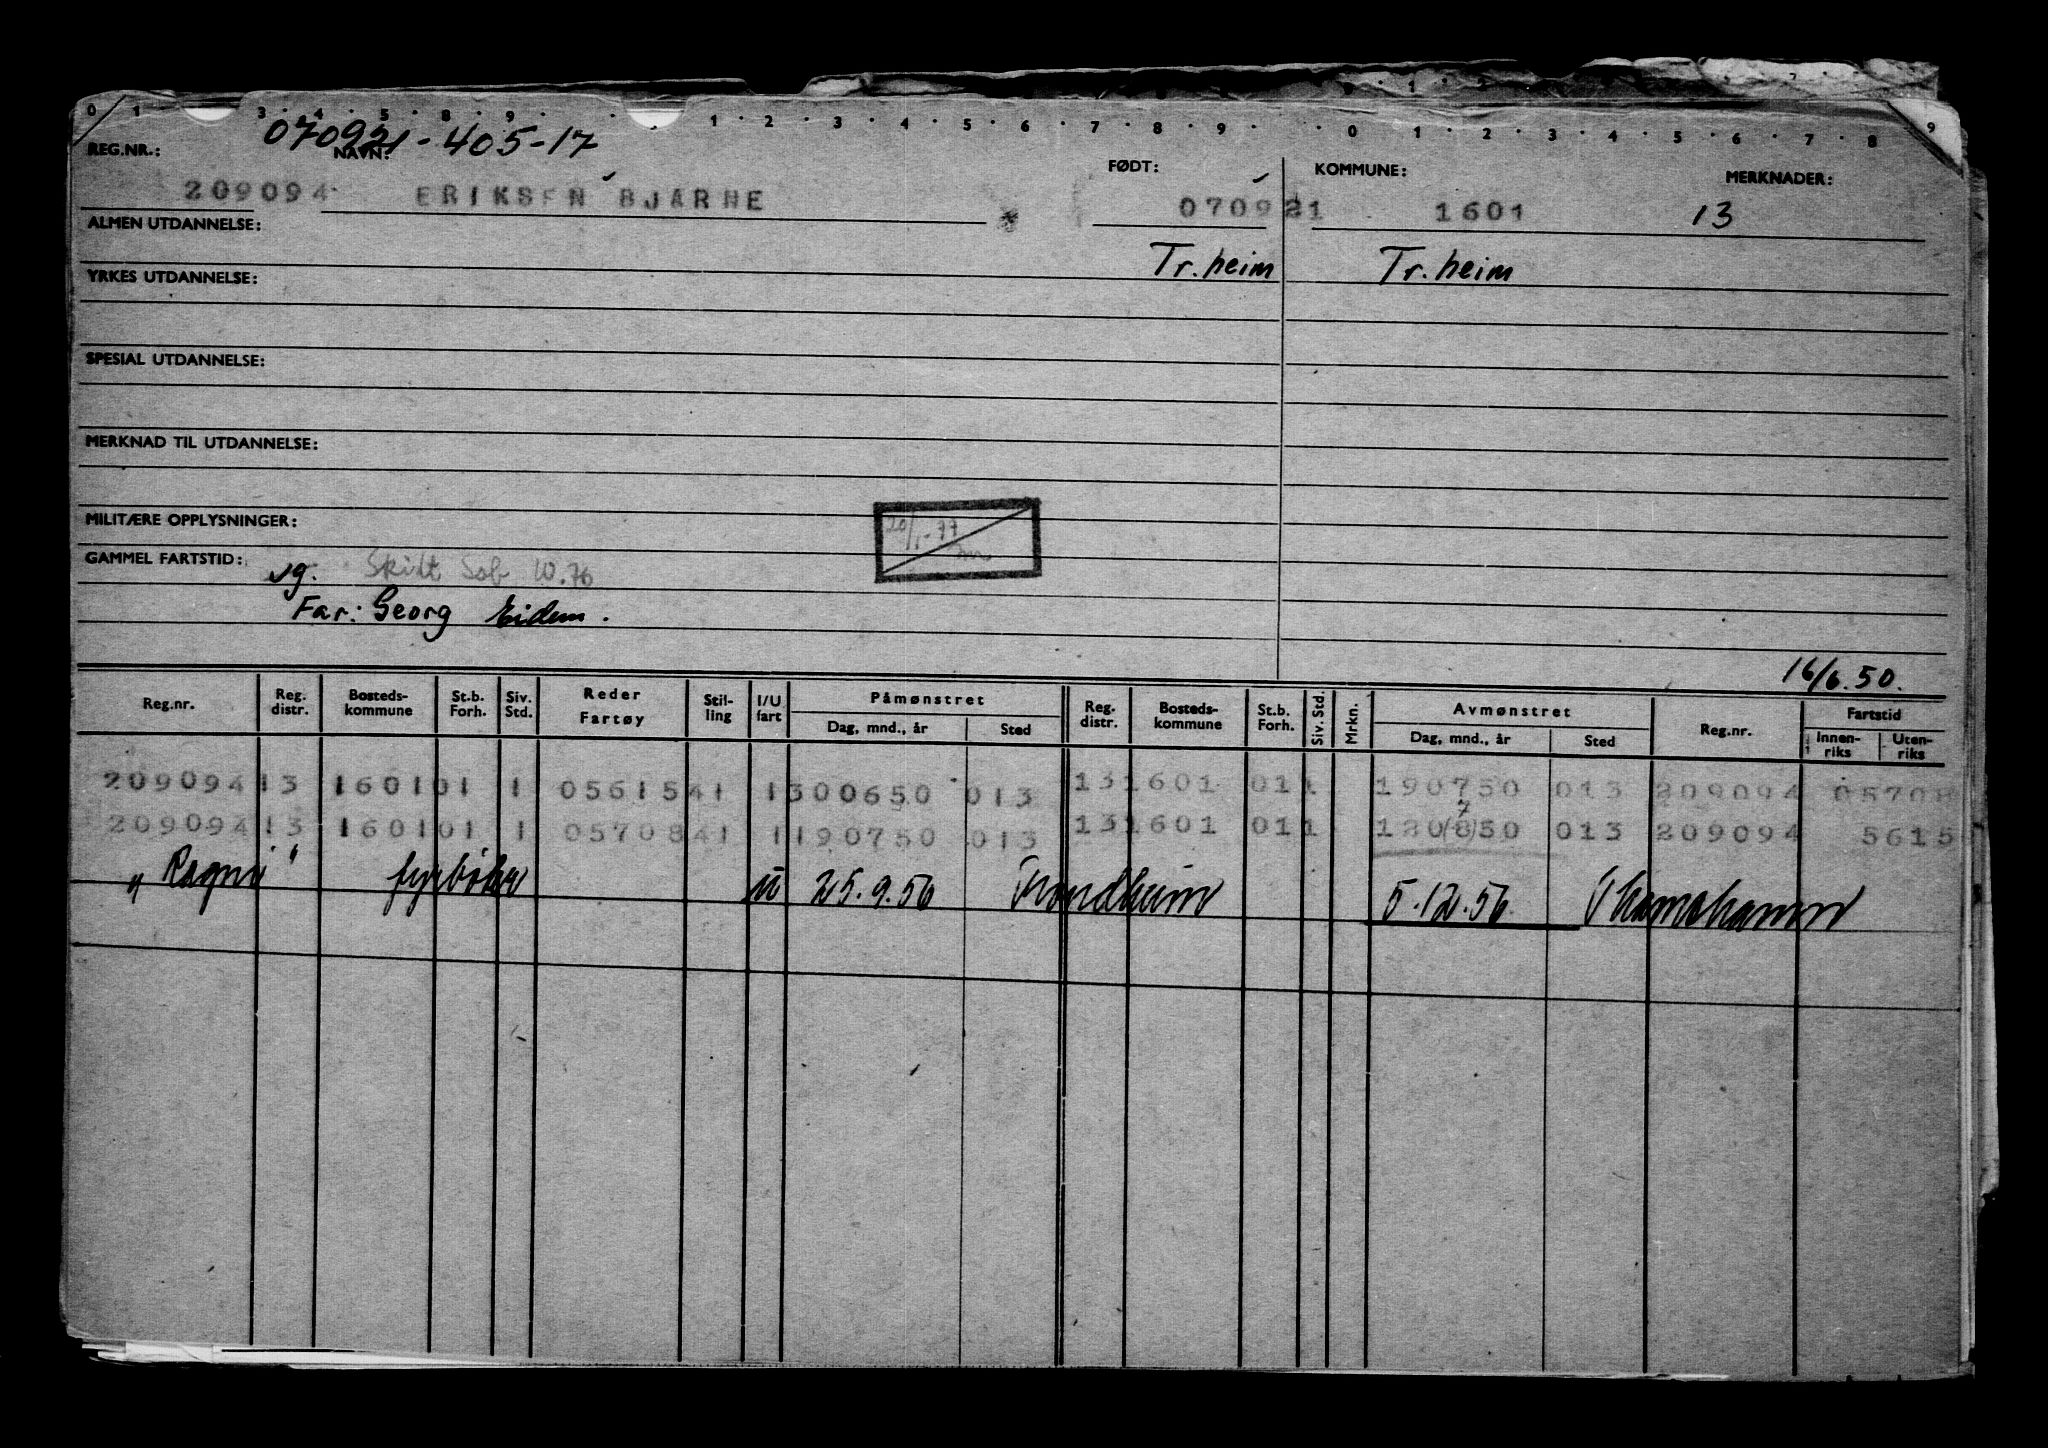 0 1 3 · 4 · 5 · 8 · 9 · 1 · 2 · 3 · 4 · 5 · 6 · 7 · 8 · 9 · 0 · 1 · 2 · 3 · 4 · 5 · 6 · 7 · 8 9
070921-405-17
REG.NR.: NAVN: FØDT: KOMMUNE: MERKNADER:
209094 ERIKSEN BJARNE 070921 1601 13
ALMEN UTDANNELSE:
Tr.heim Tr.heim
YRKES UTDANNELSE:
SPESIAL UTDANNELSE:
MERKNAD TIL UTDANNELSE:
MILITÆRE OPPLYSNINGER:
20/1-77
GAMMEL FARTSTID:
vg. Skilt Søb 10.76
Far: Georg Eidem.
16/6.50.
Reg.nr. Reg. distr. Bosteds-kommune St.b. Forh. Siv. Std. Reder Fartøy Stil-ling I/U fart Påmønstret Reg. distr. Bosteds-kommune St.b. Forh. Siv. Std. Mrkn. Avmønstret Reg.nr. Fartstid
Dag, mnd., år Sted Dag, mnd., år Sted Innen-riks Uten-riks
209094 13 1601 01 1 0561541 1 300650 013 13 1601 01 1 190750 013 209094 05708
7
209094 13 1601 01 1 0570841 1 190750 013 13 1601 01 1 120(8)50 013 209094 5615
"Ragni" fyrbøter u 25.9.56 Trondheim 5.12.56 Thamshamn